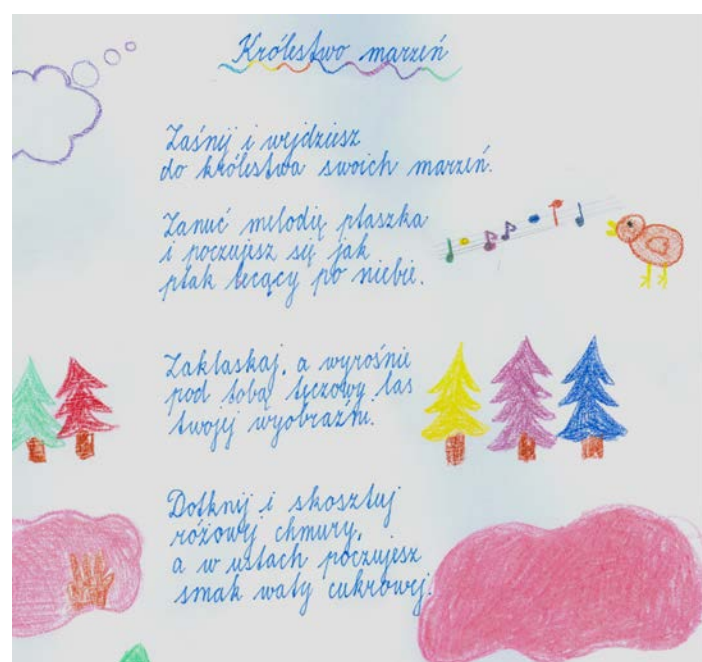 Królestwo marzeń
Zaśnij i wejdziesz
do królestwa swoich marzeń.
Zanuć melodię ptaszka
i poczujesz się jak
ptak lecący po niebie.
Zaklaskaj, a wyrośnie
pod tobą tęczowy las
twojej wyobraźni.
Dotknij i skosztuj
różowej chmury,
a w ustach poczujesz
smak waty cukrowej.